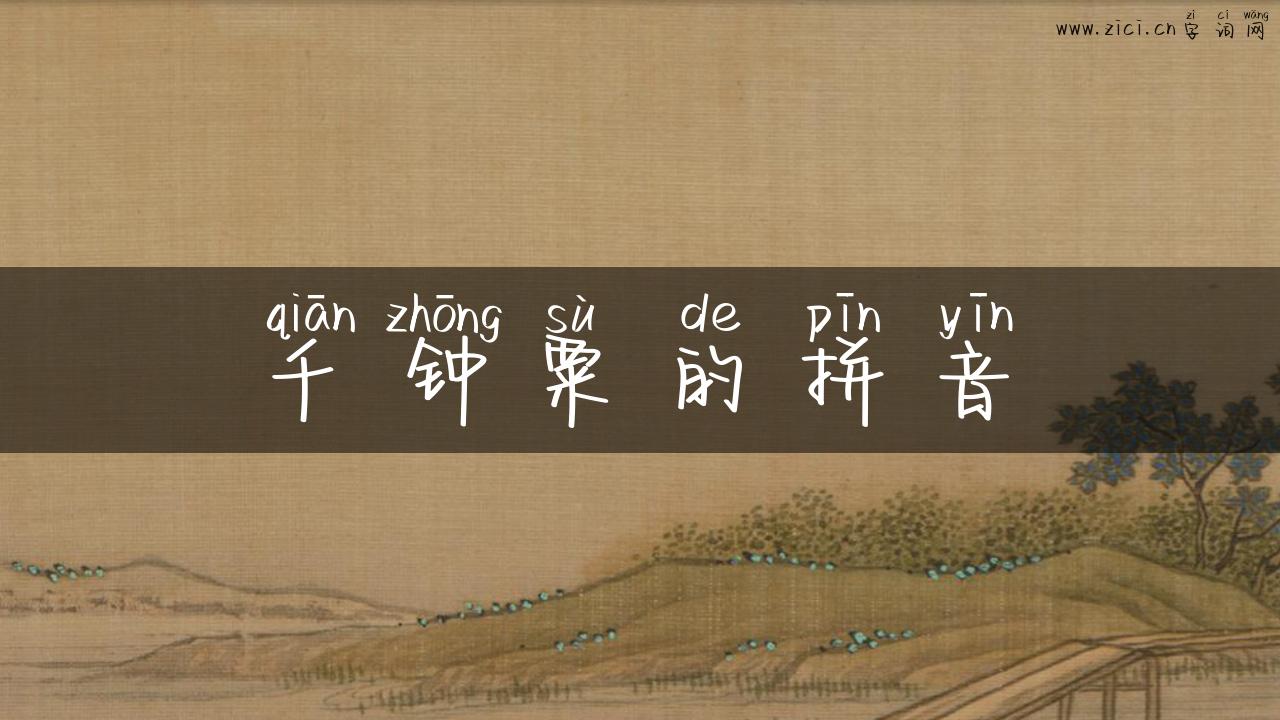 zì cí wǎng
www.zici.cn 字词网
qiān zhōng sù de pīn yīn
千钟粟的拼音